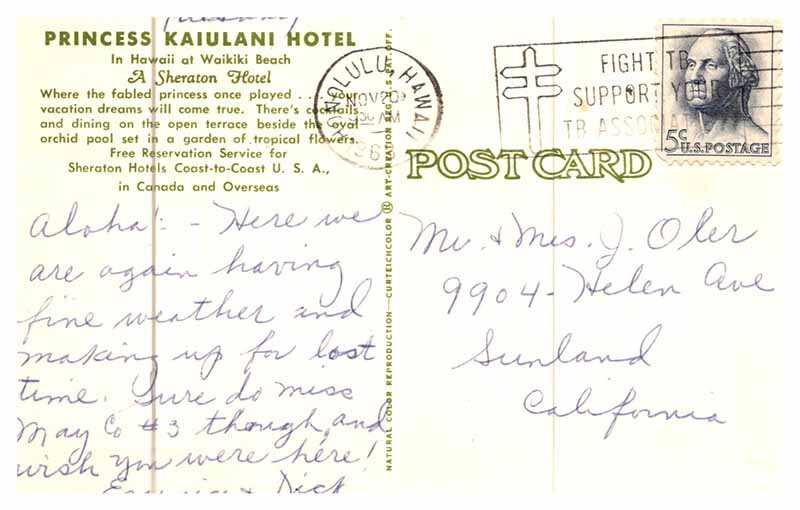 PRINCESS KAIULANI HOTEL
In Hawaii at Waikiki Beach
A Sheraton Hotel
Where the fabled princess once played . . . your
vacation dreams will come true. There's cocktails
and dining on the open terrace beside the oval
orchid pool set in a garden of tropical flowers.
Free Reservation Service for
Sheraton Hotels Coast-to-Coast U. S. A.,
in Canada and Overseas
Aloha! - Here we
are again having
fine weather and
making up for lost
time. Sure do miss
May Co #3 though, and
wish you were here!
& Dick
NATURAL COLOR REPRODUCTION—CURTEICHCOLOR ® ART-CREATION REG. U.S. PAT. OFF.
HONOLULU, HAWAII
NOV 20
AM
FIGHT TB
SUPPORT YOUR
TB ASSOCIA
5c
U.S. POSTAGE
POST CARD
Mr. & Mrs. J. Oler
9904 - Helen Ave
Sunland
California